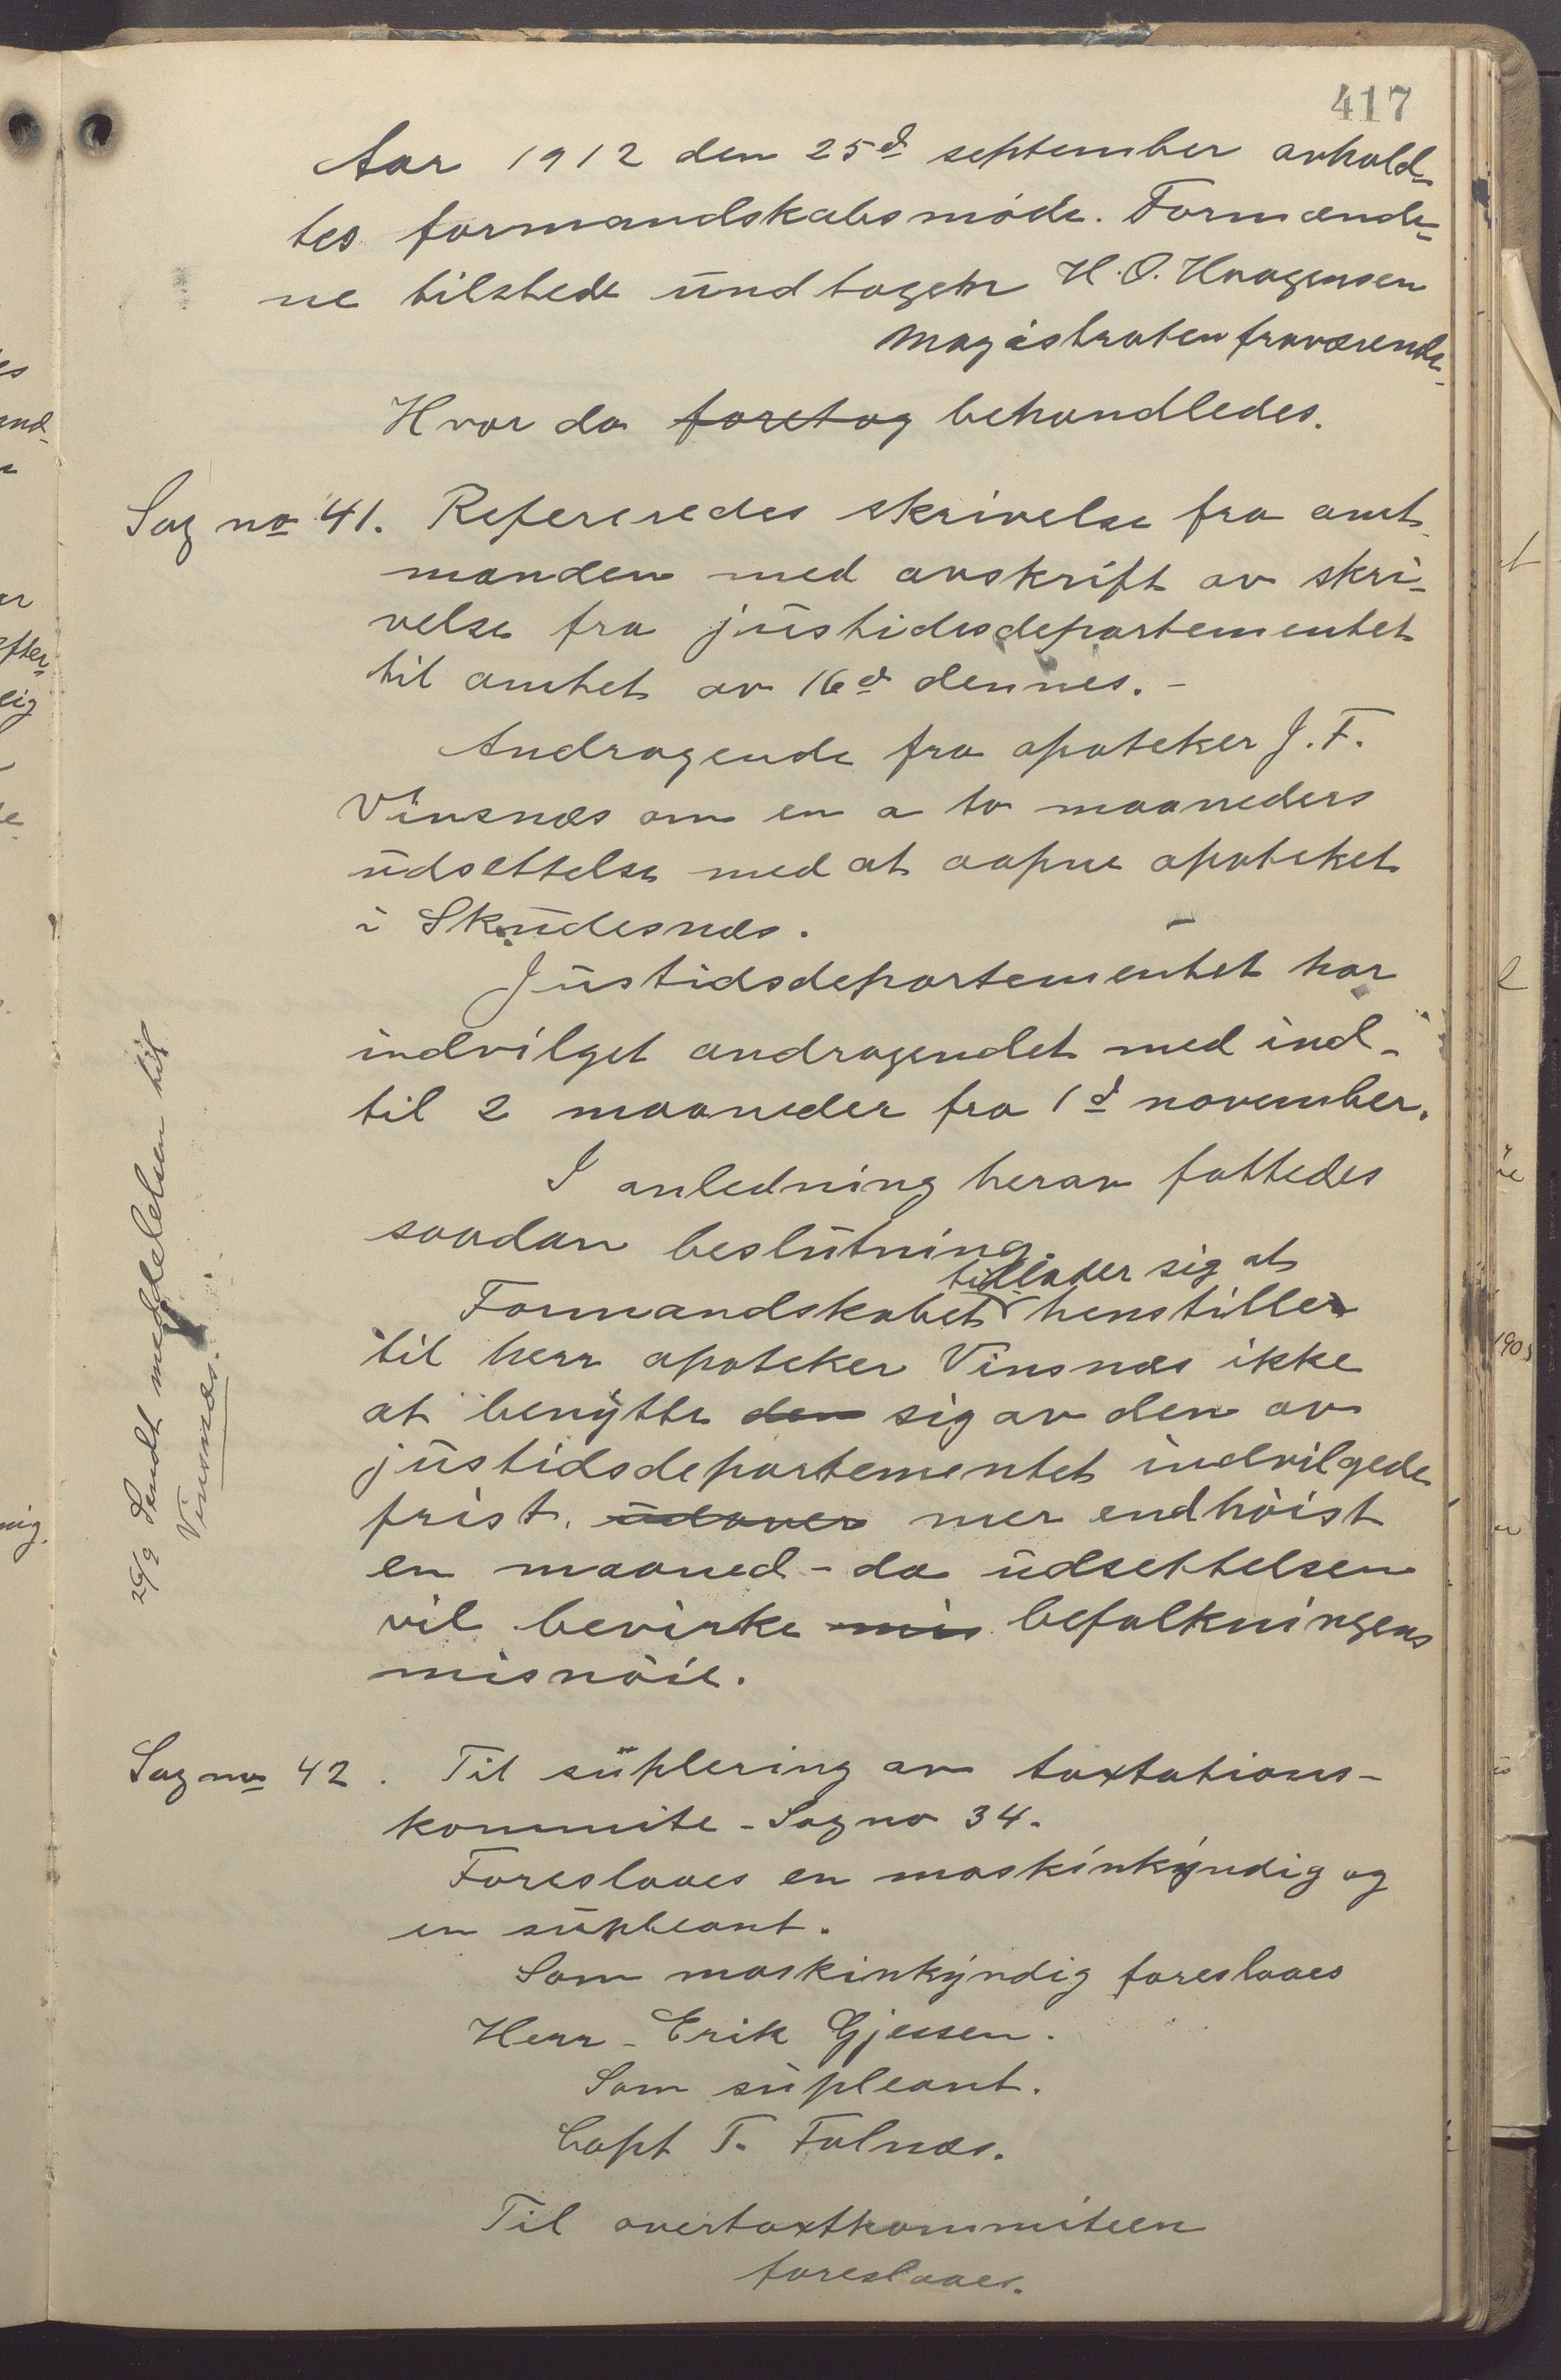 417
Aar 1912 den 25d september avhold-
tes formandskabsmöde. Formænde-
ne tilstede undtagen H. O. Haagensen
Magistraten fraværende
Hvor da foretog behandledes.
Sag no 41. Refereredes skrivelse fra amt-
manden med avskrift av skri-
velse fra justidsdepartementet
til amtet av 16d dennes. -
Andragende fra apoteker J. F.
Vinsnæs om en a to maaneders
udsettelse med at aapne apoteket
i Skudesnæs.
Justidsdepartementet har
indvilget andragendet med ind-
til 2 maaneder fra 1d november.
I anledning herav fattedes
saadan beslutning.
tillader sig at
Formandskabet henstiller
til herr apoteker Vinsnæs ikke
at benytte den sig av den av
justidsdepartementet indvilgede
frist. udover mer end höist
en maaned - da udsettelsen
vil bevirke mis befolkningens
misnöie.
26/9 Sendt meddelelsen til
Vinsnæs.
Sag no 42. Til suplering av taxtations-
kommite - Sag no 34.
Foreslaaes en maskinkyndig og
en supleant.
Som maskinkyndig foreslaaes
Herr - Erik Gjessen.
Som supleant.
Capt T. Falnæs.
Til overtaxtkommiteen
foreslaaes.